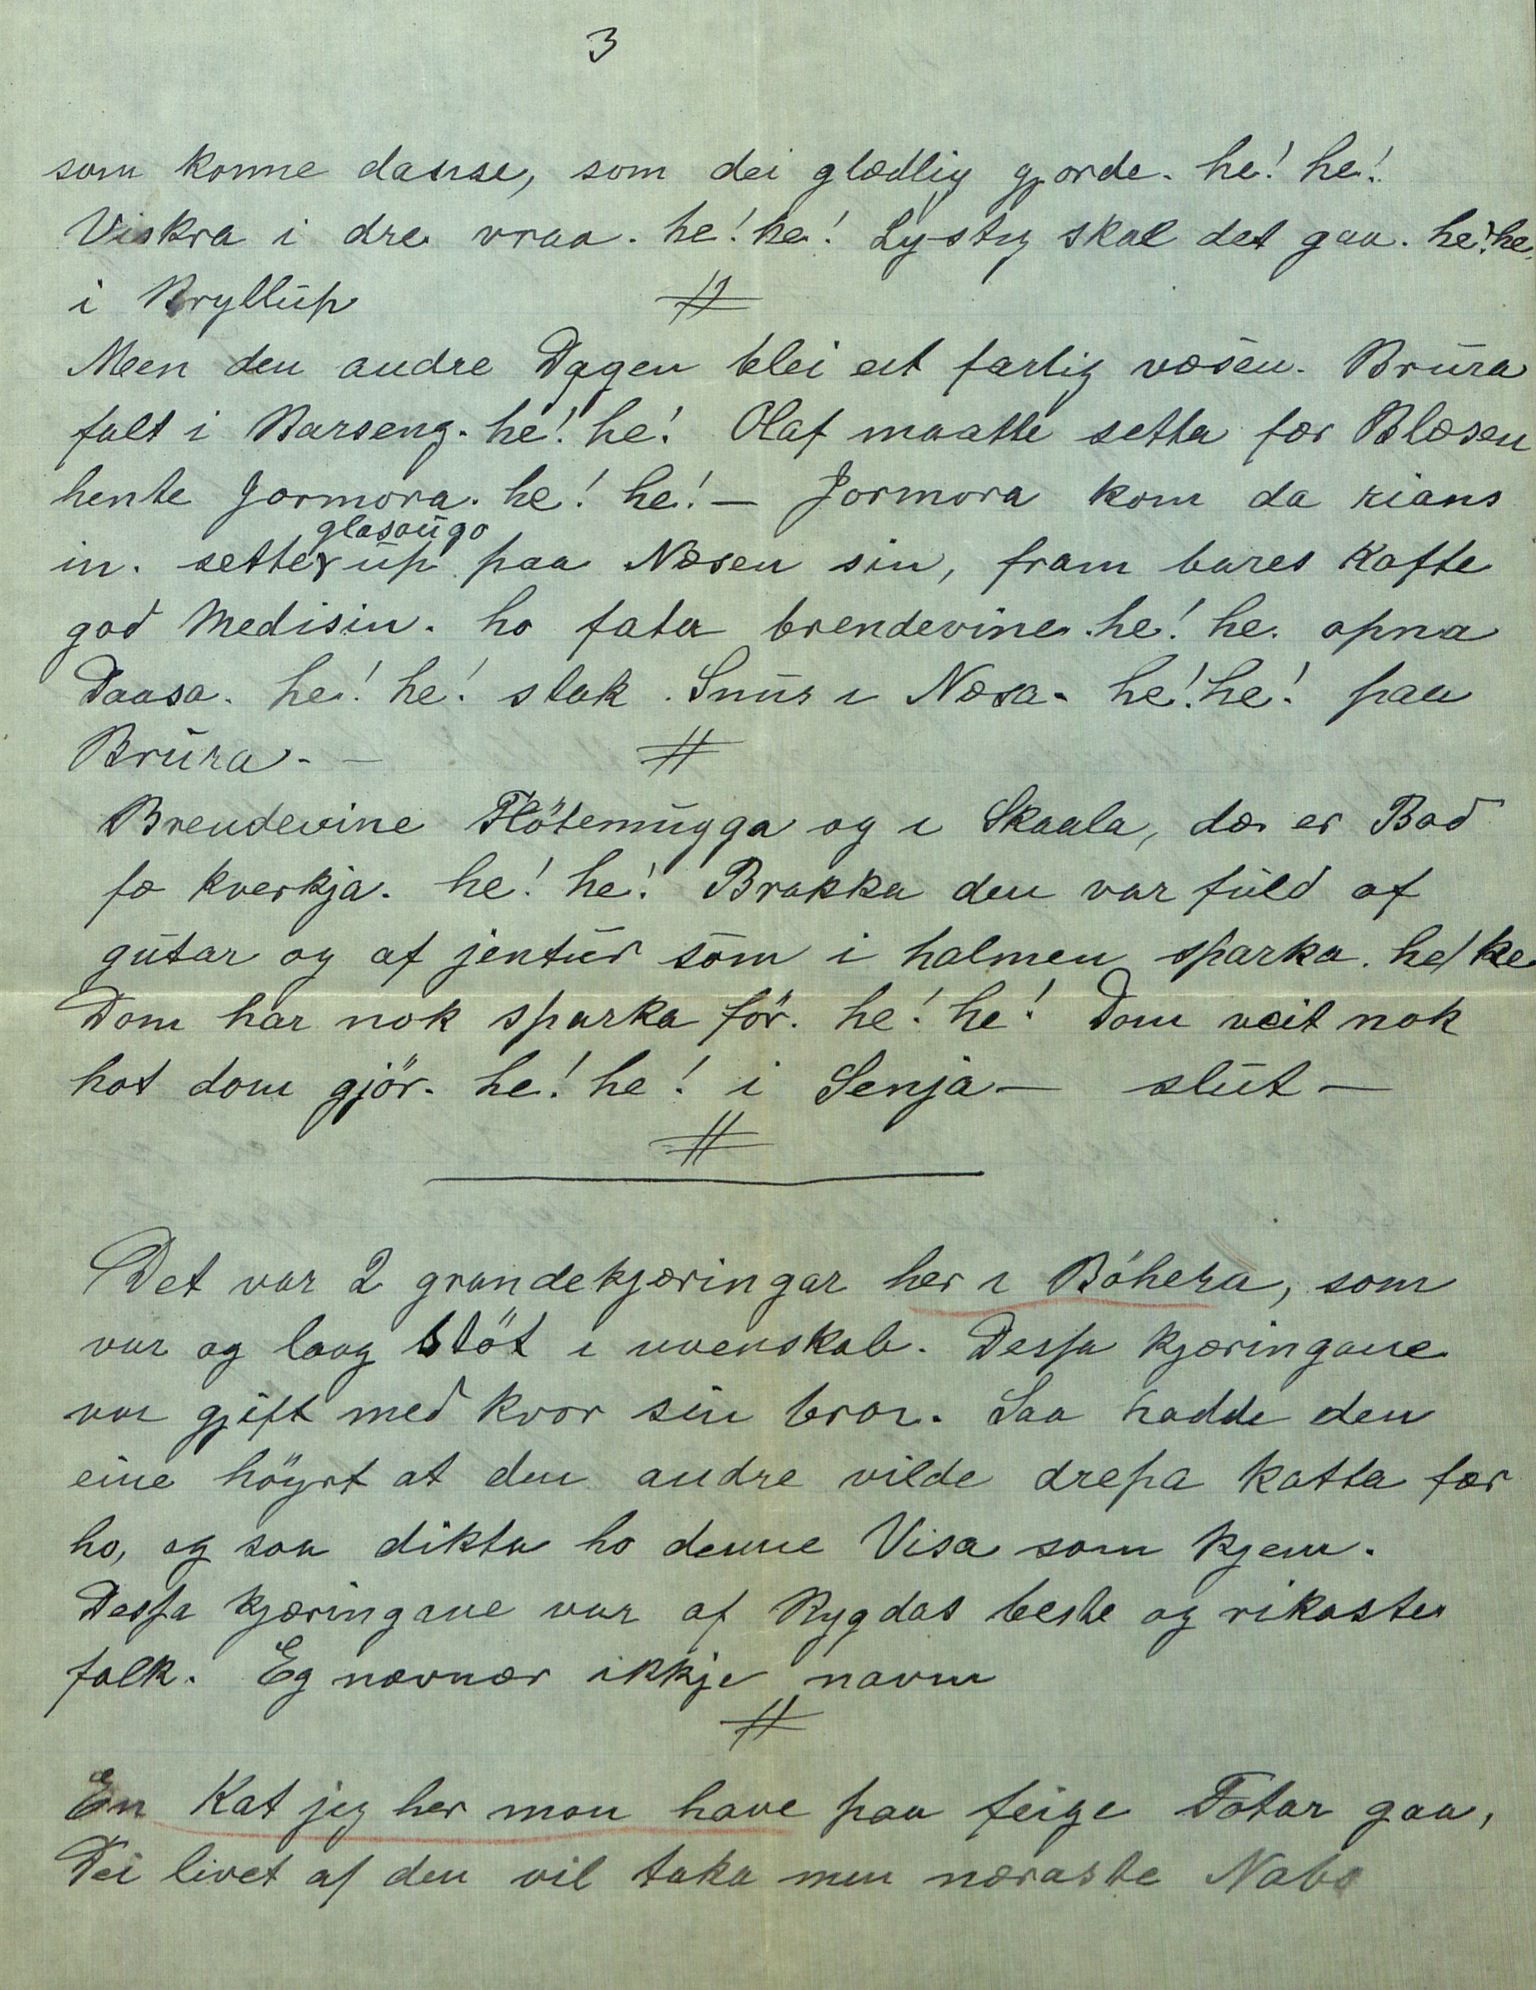 3
som konne danse, som dei glædlig gjorde. he! he!
Viskra i dre vraa. he! he! Lystig skal det gaa. he! he.
i Bryllup
#
Men den andre Dagen blei eit farlig væsen. Brura
falt i Barseng. he! he! Olaf maatte setta før Blæsen
hente Jormora. he! he! — Jormora kom da rians
glasougo
in. setter up paa Næsen sin, fram bares Kaffe
god Medisin. ho fata brendevine. he! he. opna
Daasa. he! he! stak Snus i Næsa. he! he! paa
Brura. —
#
Brendevine Flötemugga og i Skaala, dær er Bod
fæ kverkja. he! he! Brakka den var fuld af
gutar og af jentur som i halmen sparka. he! he
Dom har nok sparka för. he! he! Dom veit nok
hot dom gjör. he! he! i Senja — slut —
#
Det var 2 grandekjæringar her i Böhera, som
var og laag stöt i uvenskab. Dessa kjæringane
var gift med kvor sin bror. Saa hadde den
eine höyrt at den andre vilde drepa katta før
ho, og saa dikta ho denne Visa som kjem.
Dessa kjæringane var af Bygdas beste og rikaste
folk. Eg nævnær ikkje navn
#
En Kat jeg her mon have paa feige Fotar gaa,
Dei livet af den vil taka men næraste Nabo